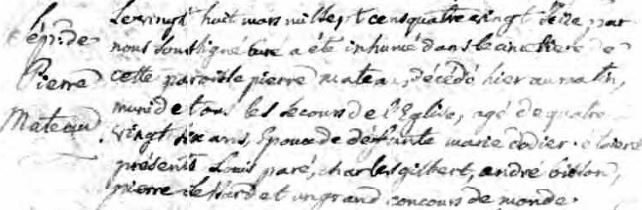 Sép: de
Pierre
Mateau
Le vingt huit mars mil sept cens quatre vingt seize par
nous soussigné curé a été inhumé dans le cimetiere de
cette paroisse pierre mateau, décédé hier au matin,
muni de tous les secours de l'Eglise, agé de quatre
vingt dix ans, Epoux de défunte marie codier. étoient
présents Louis paré, charles gilbert, andré billon,
pierre et un grand concours de monde.